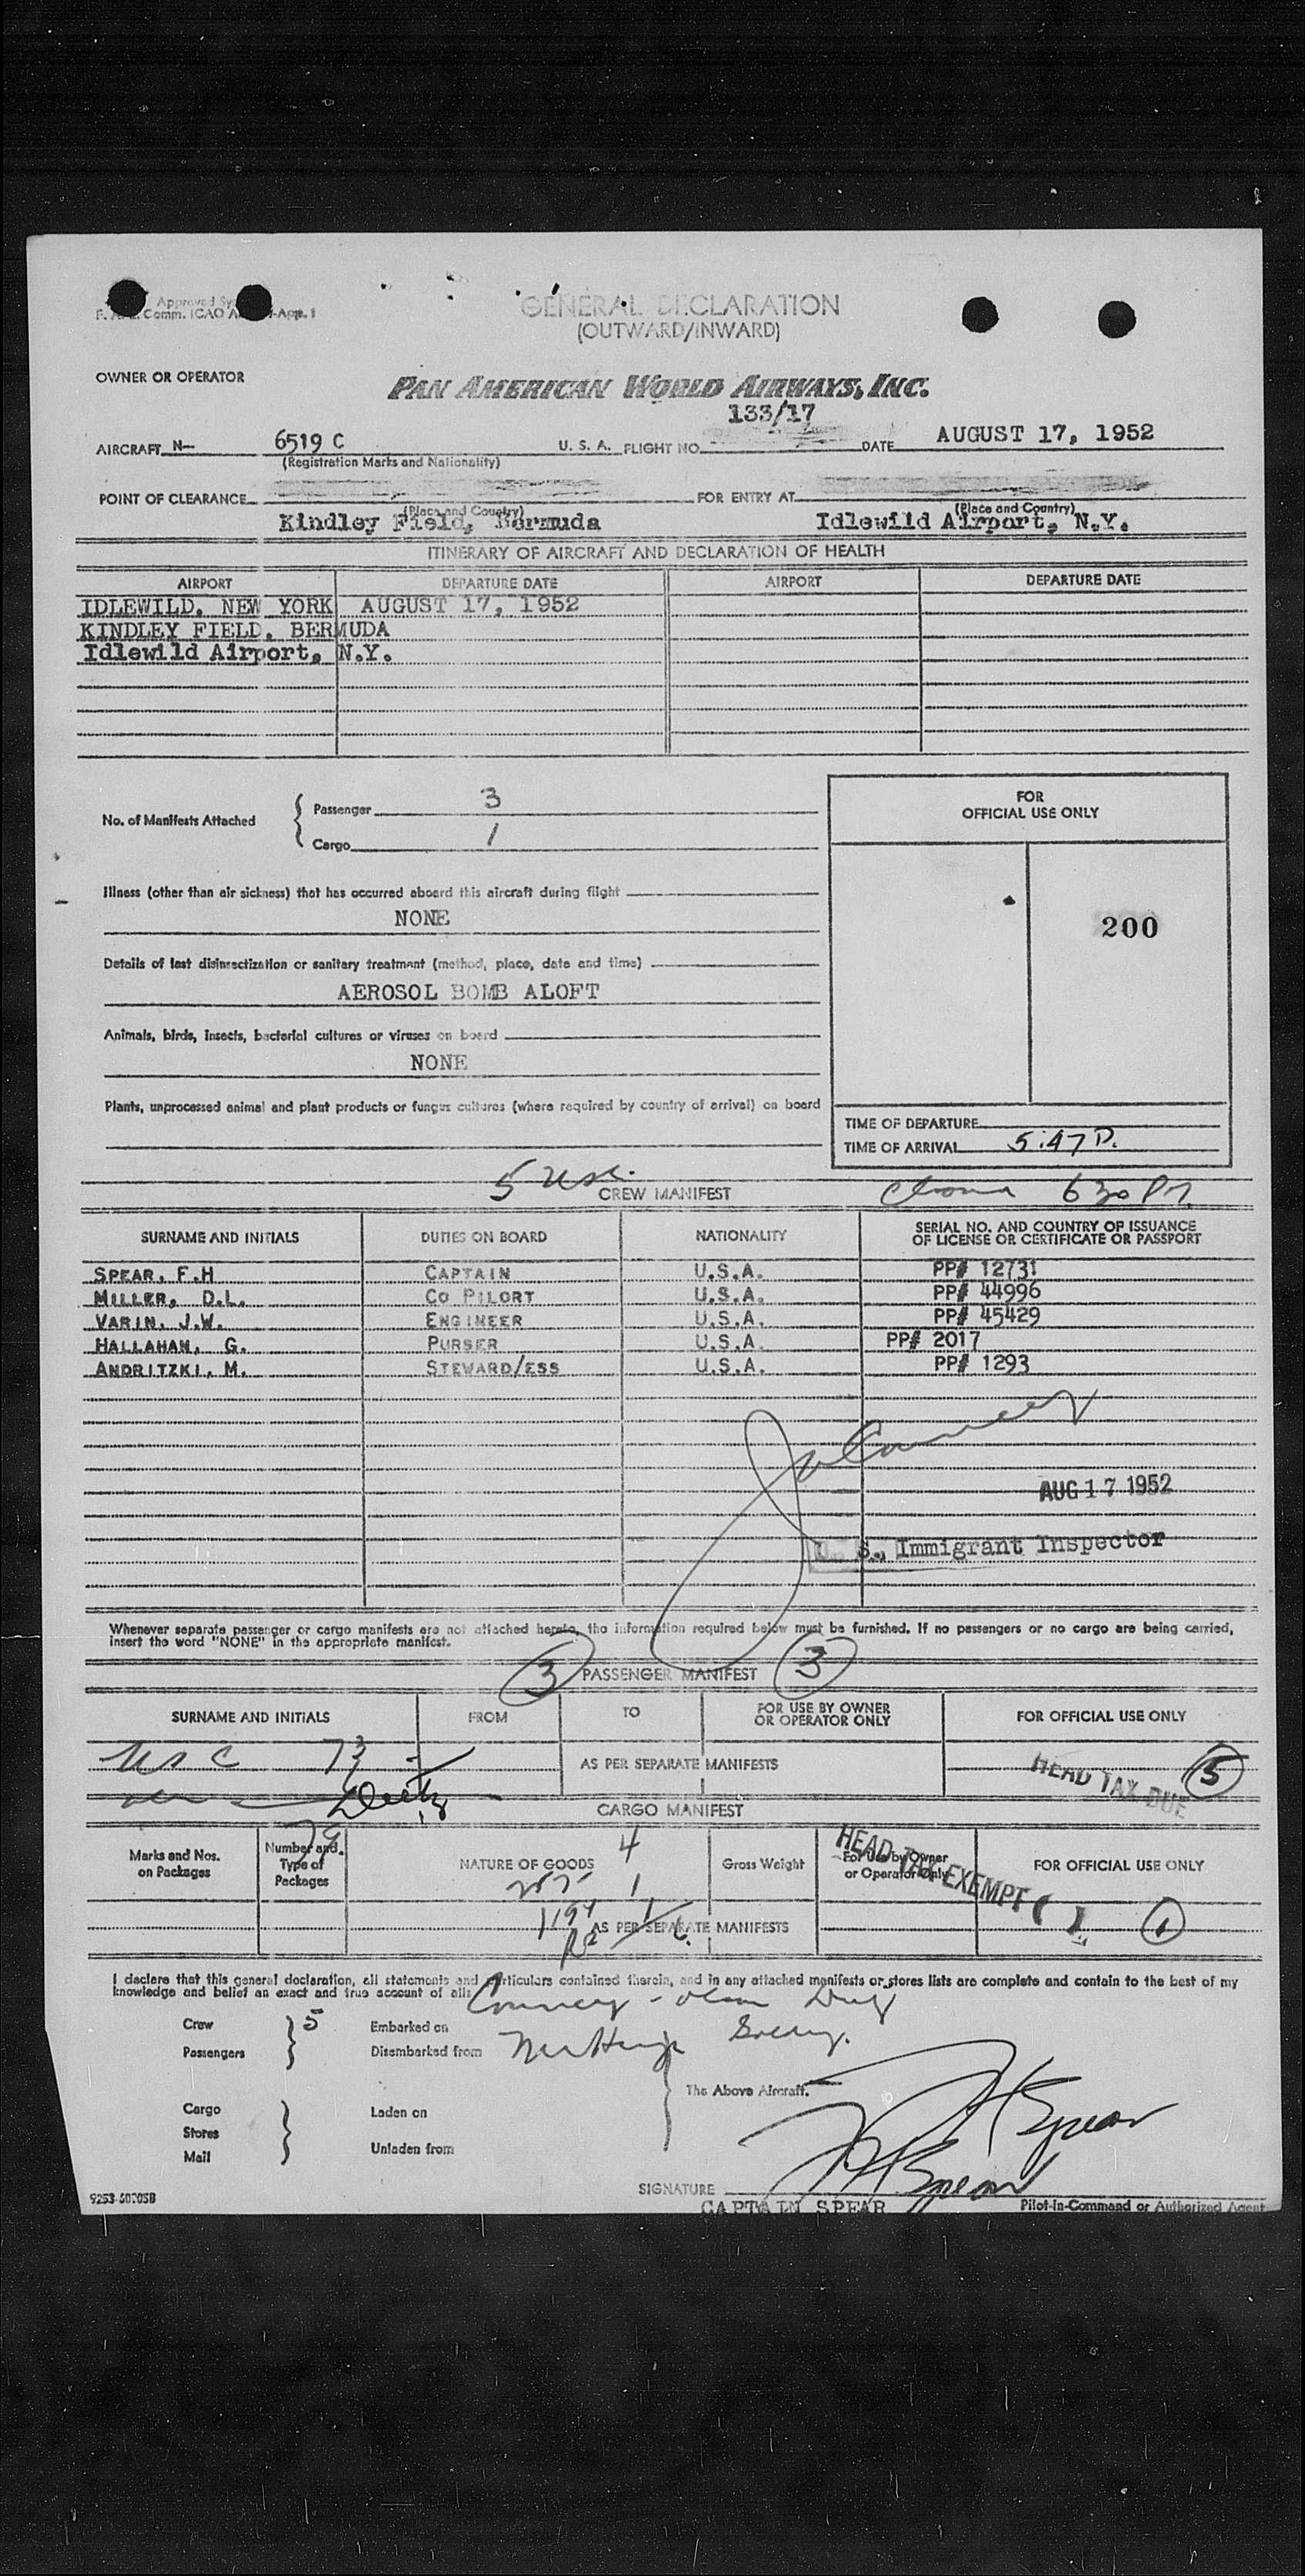 Approved
Comm. ICAO -App. 1
GENERAL DECLARATION
(OUTWARD/INWARD)
OWNER OR OPERATOR
PAN AMERICAN WORLD AIRWAYS, INC.
133/17
AIRCRAFT N— 6519 C U. S. A. FLIGHT NO. DATE AUGUST 17, 1952
(Registration Marks and Nationality)
POINT OF CLEARANCE FOR ENTRY AT
(Place and Country) (Place and Country)
Kindley Field, Bermuda Idlewild Airport, N.Y.
ITINERARY OF AIRCRAFT AND DECLARATION OF HEALTH
AIRPORT DEPARTURE DATE AIRPORT DEPARTURE DATE
IDLEWILD, NEW YORK AUGUST 17, 1952
KINDLEY FIELD, BERMUDA
Idlewild Airport, N.Y.
No. of Manifests Attached
Passenger 3
Cargo 1
FOR
OFFICIAL USE ONLY
200
Illness (other than air sickness) that has occurred aboard this aircraft during flight
NONE
Details of last disinsectization or sanitary treatment (method, place, date and time)
AEROSOL BOMB ALOFT
Animals, birds, insects, bacterial cultures or viruses on board
NONE
Plants, unprocessed animal and plant products or fungus cultures (where required by country of arrival) on board
TIME OF DEPARTURE
TIME OF ARRIVAL 5:47 P.
5 usc.
CREW MANIFEST
SURNAME AND INITIALS DUTIES ON BOARD NATIONALITY SERIAL NO. AND COUNTRY OF ISSUANCE
OF LICENSE OR CERTIFICATE OR PASSPORT
SPEAR, F.H CAPTAIN U.S.A. PP# 12731
MILLER, D.L. CO PILORT U.S.A. PP# 44996
VARIN, J.W. ENGINEER U.S.A. PP# 45429
HALLAHAN, G. PURSER U.S.A. PP# 2017
ANDRITZKI, M. STEWARD/ESS U.S.A. PP# 1293
AUG 17 1952
U. S., Immigrant Inspector
Whenever separate passenger or cargo manifests are not attached hereto, the information required below must be furnished. If no passengers or no cargo are being carried,
insert the word "NONE" in the appropriate manifest.
3 PASSENGER MANIFEST 3
SURNAME AND INITIALS FROM TO FOR USE BY OWNER
OR OPERATOR ONLY FOR OFFICIAL USE ONLY
usc 73
AS PER SEPARATE MANIFESTS
HEAD TAX DUE 5
CARGO MANIFEST
Marks and Nos.
on Packages
Number and
Type of
Packages
79
NATURE OF GOODS 4
Gross Weight
For Use by Owner
or Operator Only
FOR OFFICIAL USE ONLY
HEAD TAX EXEMPT ( ) 1
AS PER SEPARATE MANIFESTS
I declare that this general declaration, all statements and particulars contained therein, and in any attached manifests or stores lists are complete and contain to the best of my
knowledge and belief an exact and true account of all:
Crew 5 Embarked on
Passengers Disembarked from
The Above Aircraft.
Cargo Laden on
Stores
Mail Unladen from
F H Spear
SIGNATURE F H Spear
CAPTAIN SPEAR Pilot-in-Command or Authorized Agent